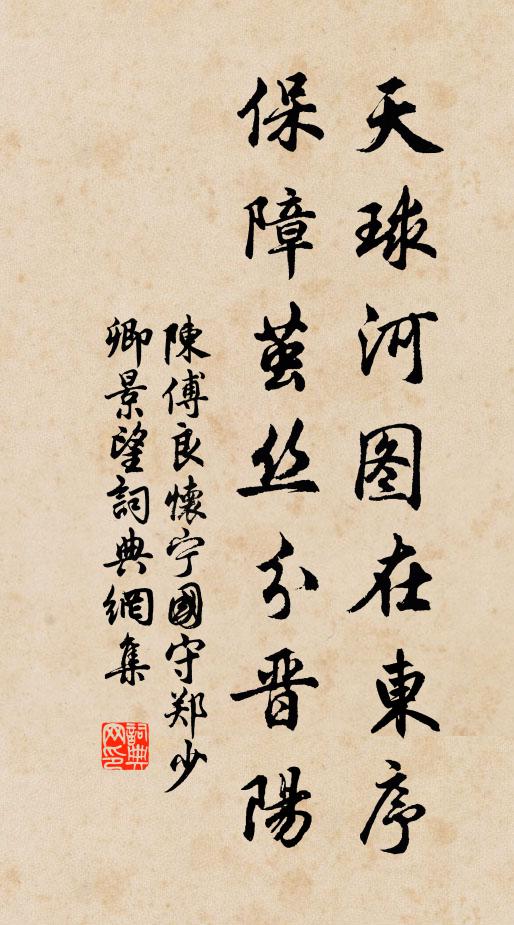 天球河图在東序
保障茧丝分晋陽
陳傅良懷宁國守郑少
卿景望詞典網集
詞典网印